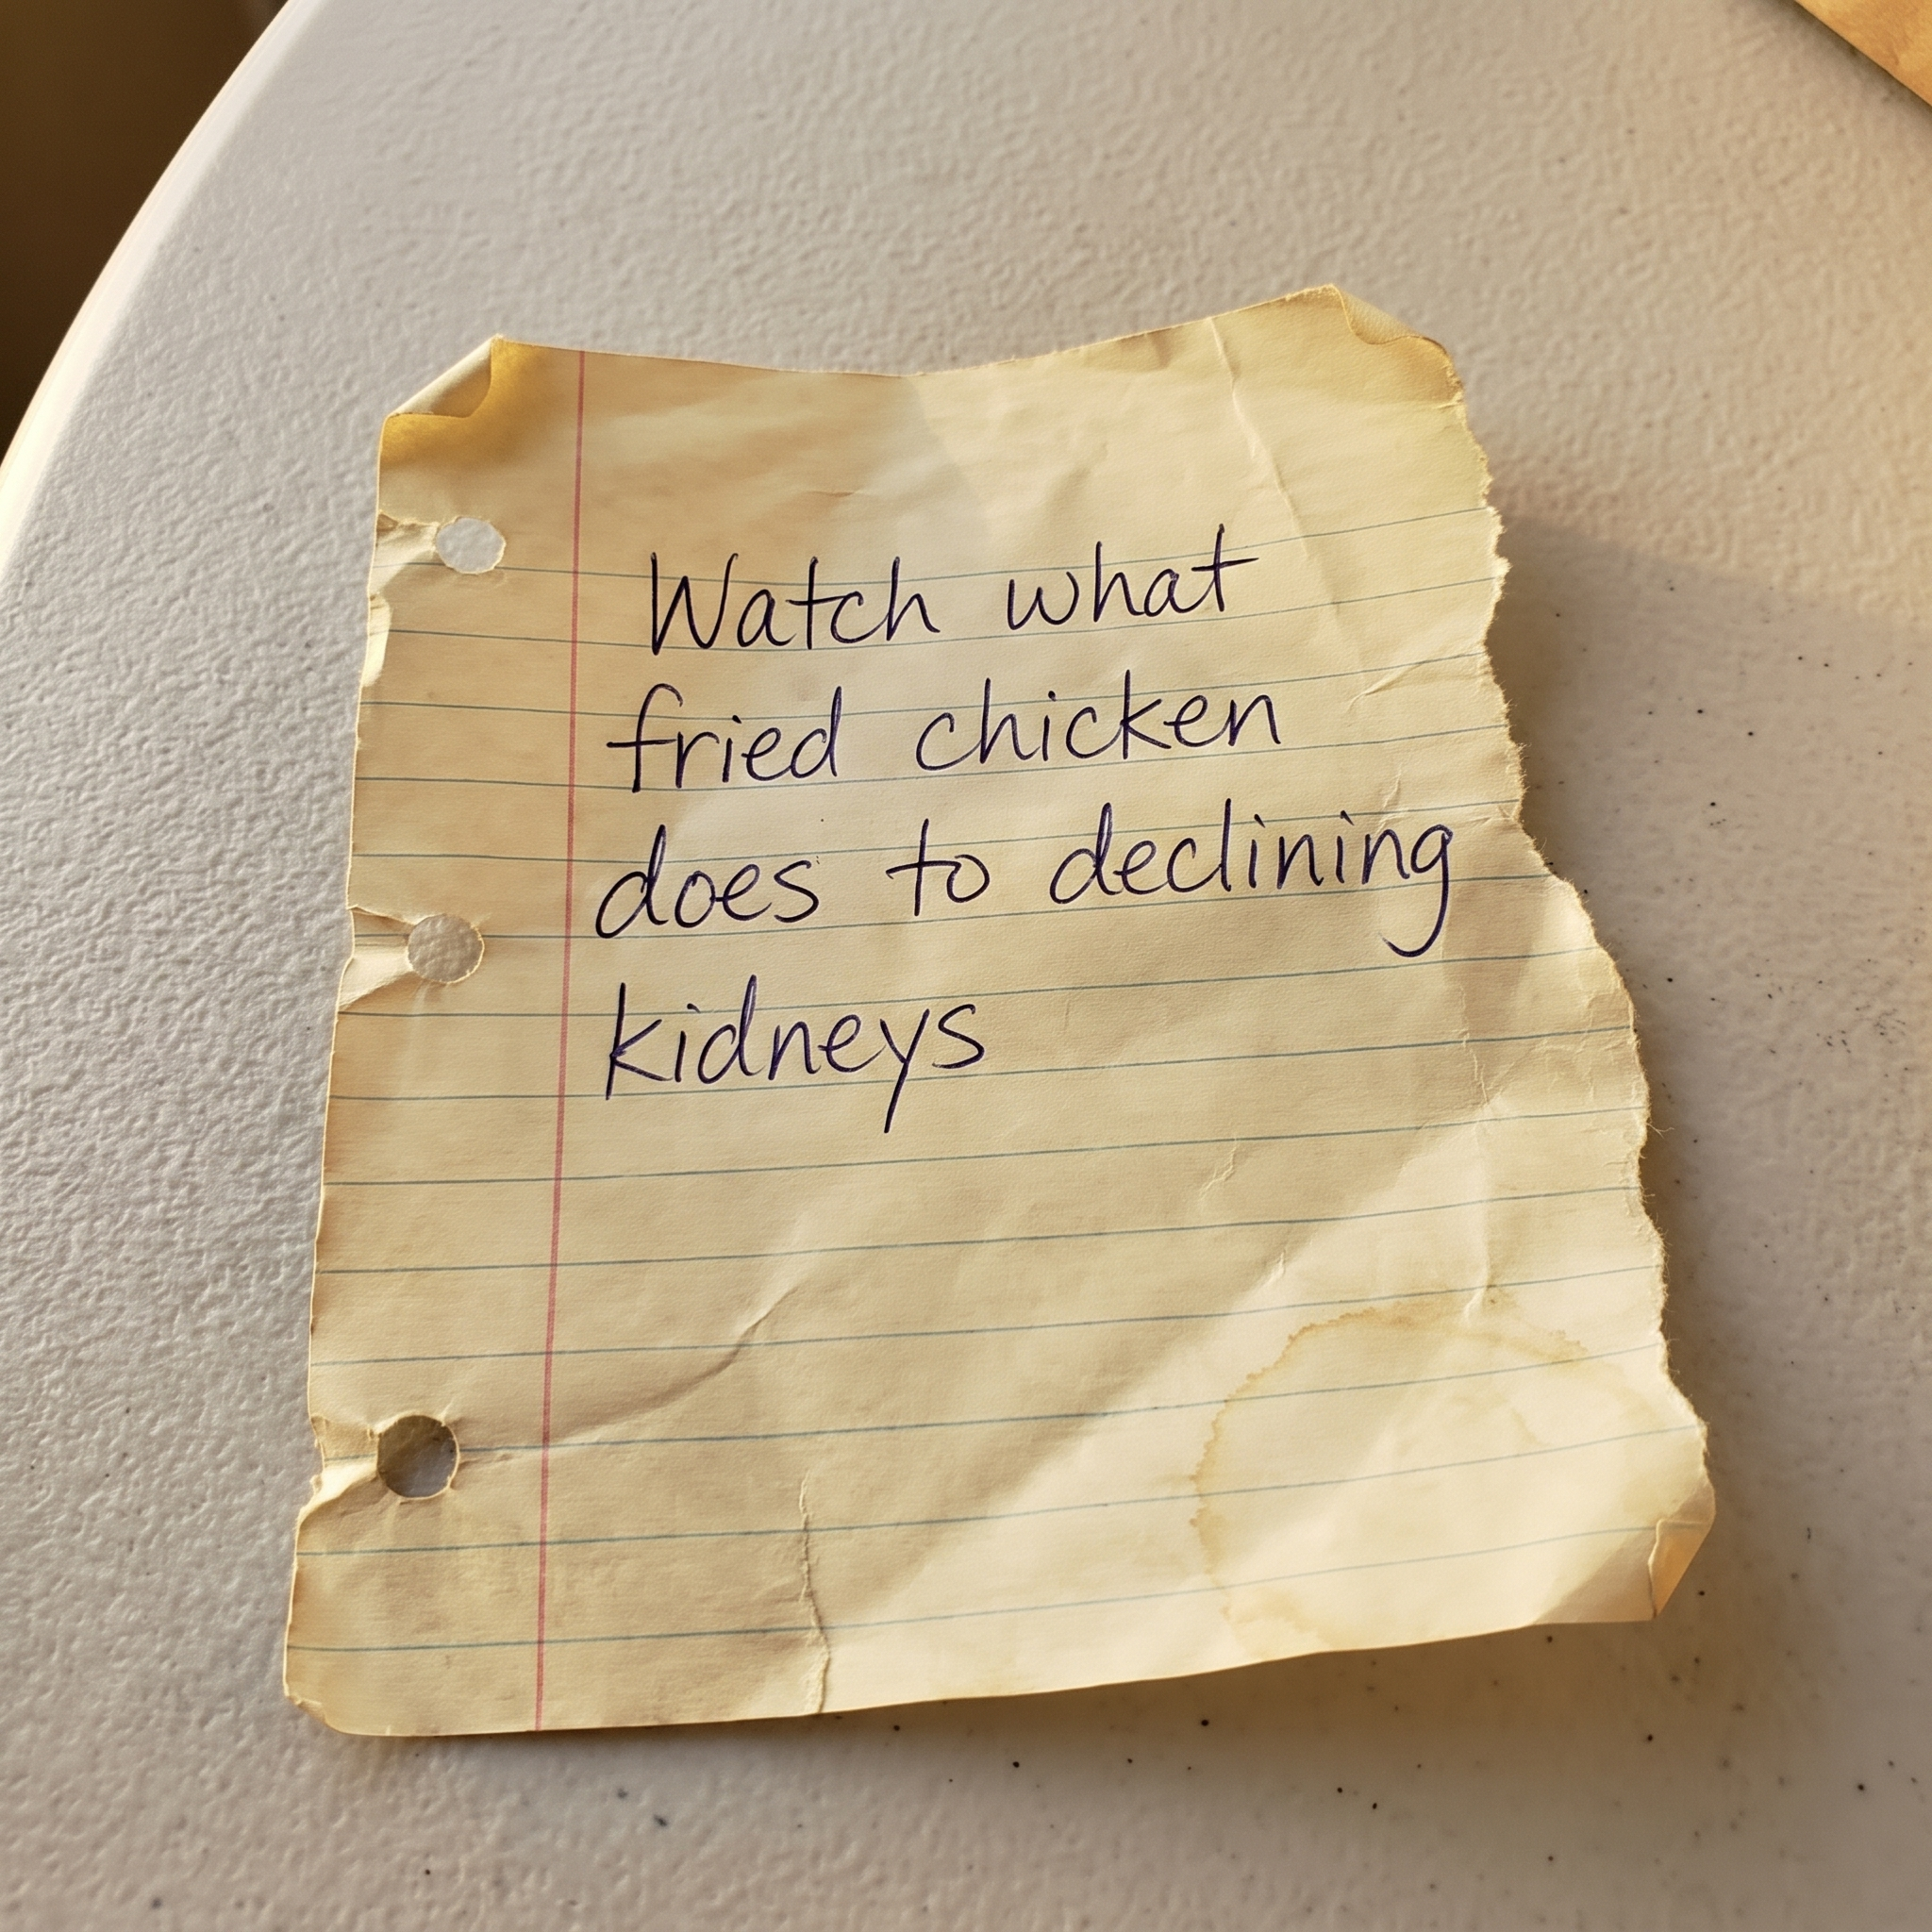 Watch what
fried chicken
does to declining
kidneys